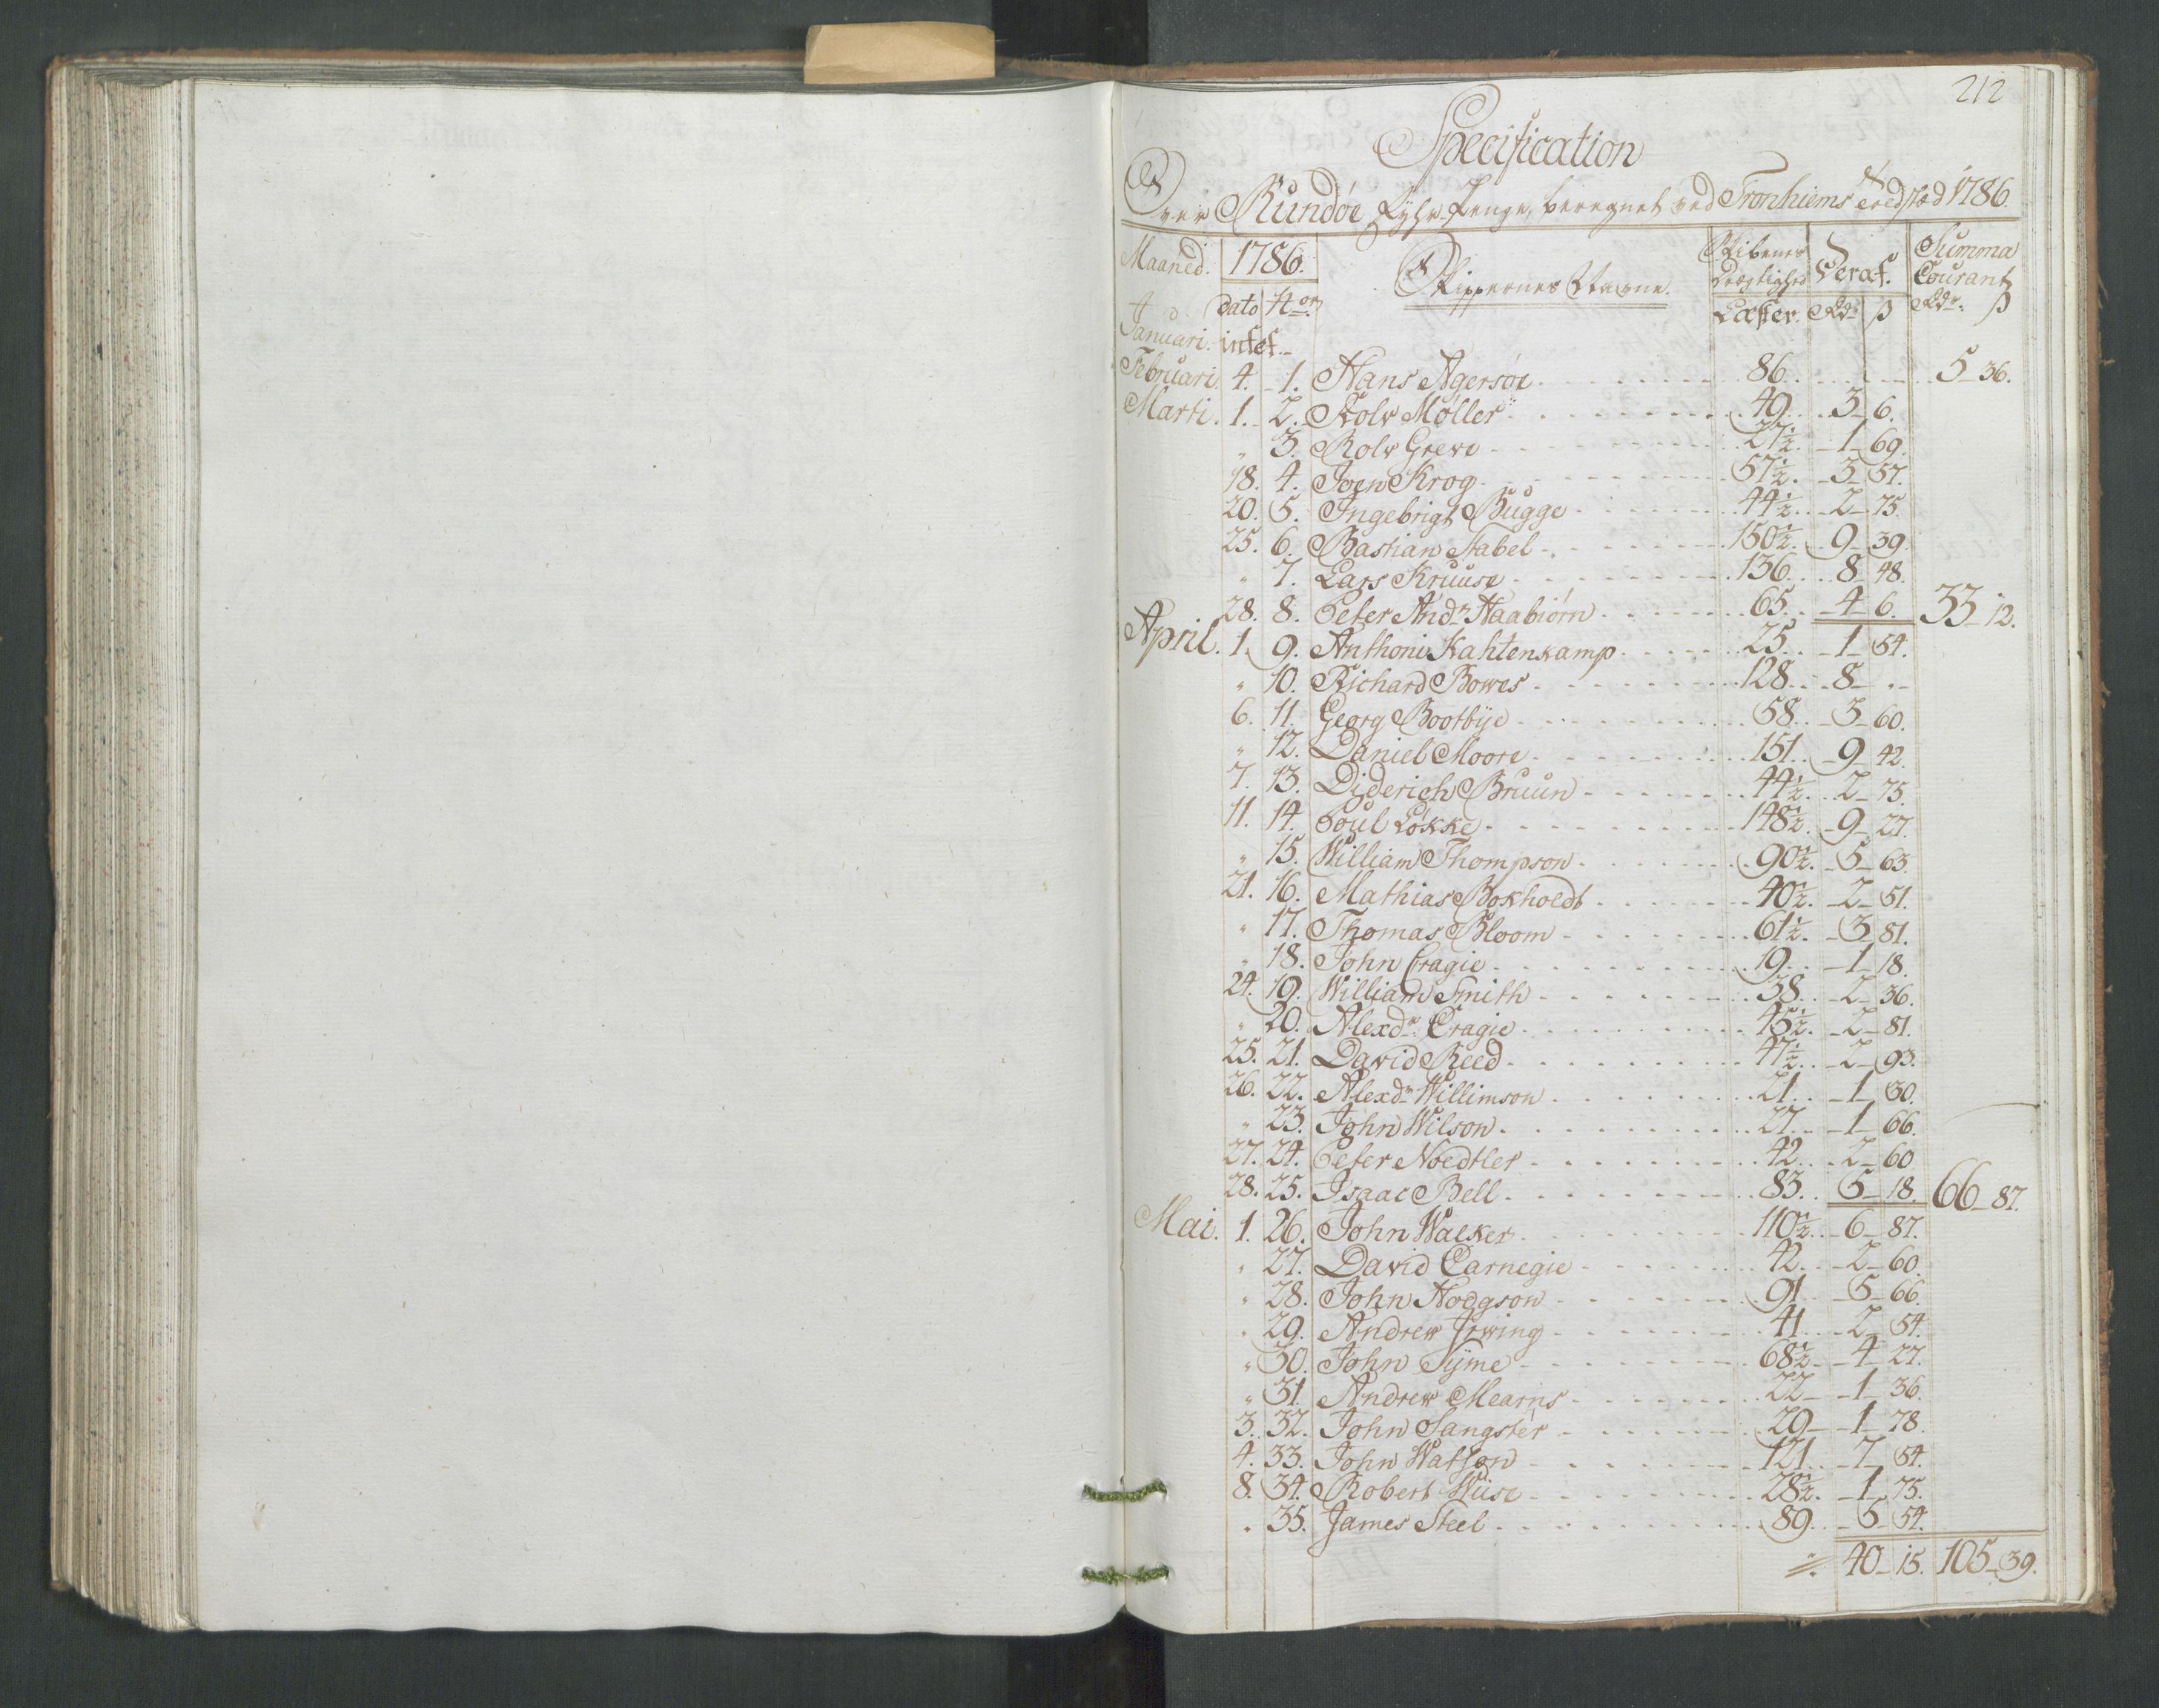 212
Specification
Over Rundøe Fyhr-Penge, beregnet ved Tronhiems Toldsted 1786.
Maaned. 1786. Skippernes Navne. Skibenes Drægtighed Deraf. Summa Courant
Dato No. Læster. Rdr ß Rdr. ß
Januari. intet.
Februari. 4. 1. Hans Agersøe 86. 5 36.
Marti. 1. 2. Rolv Møller 49. 3 6.
" 3. Rolv Greve 27½. 1 69.
18. 4. Joen Krog 57½. 3 57.
20. 5. Ingebrigt Bugge 44½. 2 75.
25. 6. Bastian Stabel 150½. 9 39.
" 7. Lars Kruuse 136. 8 48.
28. 8. Peter Andr. Haabiørn 65. 4 6. 33 12.
April. 1. 9. Anthoni Kahtenkamp 25. 1 54.
" 10. Richard Bowes 128. 8 "
6. 11. Georg Bootbÿe 58. 3 60.
" 12. Daniel Moore 151. 9 42.
7. 13. Diderich Bruun 44½. 2 75.
11. 14. Poul Løkke 148½. 9 27.
" 15. William Thompson 90½. 5 63.
21. 16. Mathias Bokholdt 40½. 2 51.
" 17. Thomas Bloom 61½. 3 81.
" 18. John Cragie 19. 1 18.
24. 19. William Smith 38. 2 36.
" 20. Alexdr. Cragie 45½. 2 81.
25. 21. David Reed 47½. 2 93.
26. 22. Alexdr. Willimson 21. 1 30.
" 23. John Wilson 27. 1 66.
27. 24. Peter Noedtler 42. 2 60.
28. 25. Isaac Bell 83. 5 18. 66 87.
Mai. 1. 26. John Walker 110½. 6 87.
" 27. David Carnegie 42. 2 60.
" 28. John Hodgson 91. 5 66.
" 29. Andrew Irwing 41. 2 54.
" 30. John Sÿme 68½. 4 27.
" 31. Andrew Mearns 22 1 36.
3. 32. John Sangster 29 1 78.
4. 33. John Watson 121. 7 54.
8. 34. Robert Wise 28½. 1 75.
" 35. James Steel 89. 5 54.
40 15. 105 39.